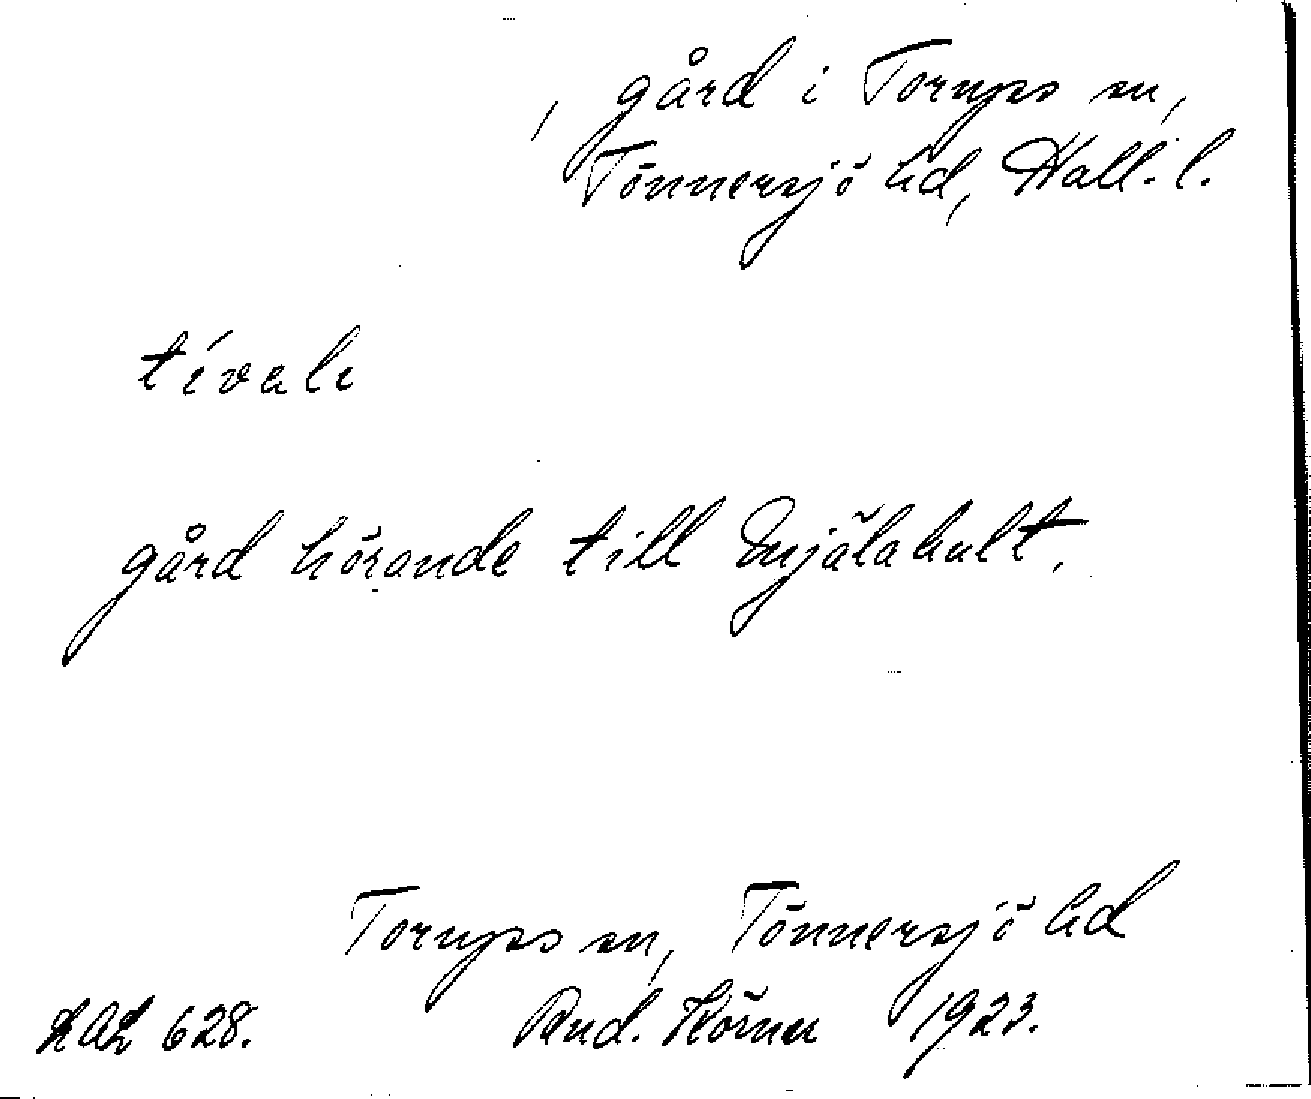 , gård i Torups sn,
Tönnersjö hd, Hall. l.
tívalı
gård hörande till Snjälahult.
Torups sn, Tönnersjö hd
LAL 628. Rud. Körner 1923.